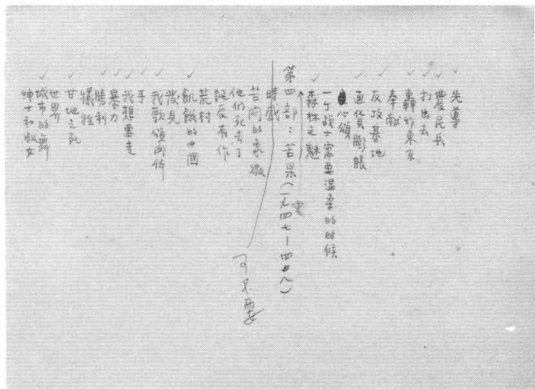 先導
農民兵
打出去
轟炸東京
奉献
反攻基地
通貨膨脹
心頌
一个战士需要温柔的时候
森林之魅
第四部：苦果（一九四七－四八）
時感
苦悶的象徵
他們死去了
誕辰有作
荒村
飢餓的中國
發見
我歌頌肉体
手
我想要走
暴力
勝利
犧牲
甘地之死
世界
城市的舞
紳士和淑女
可不要